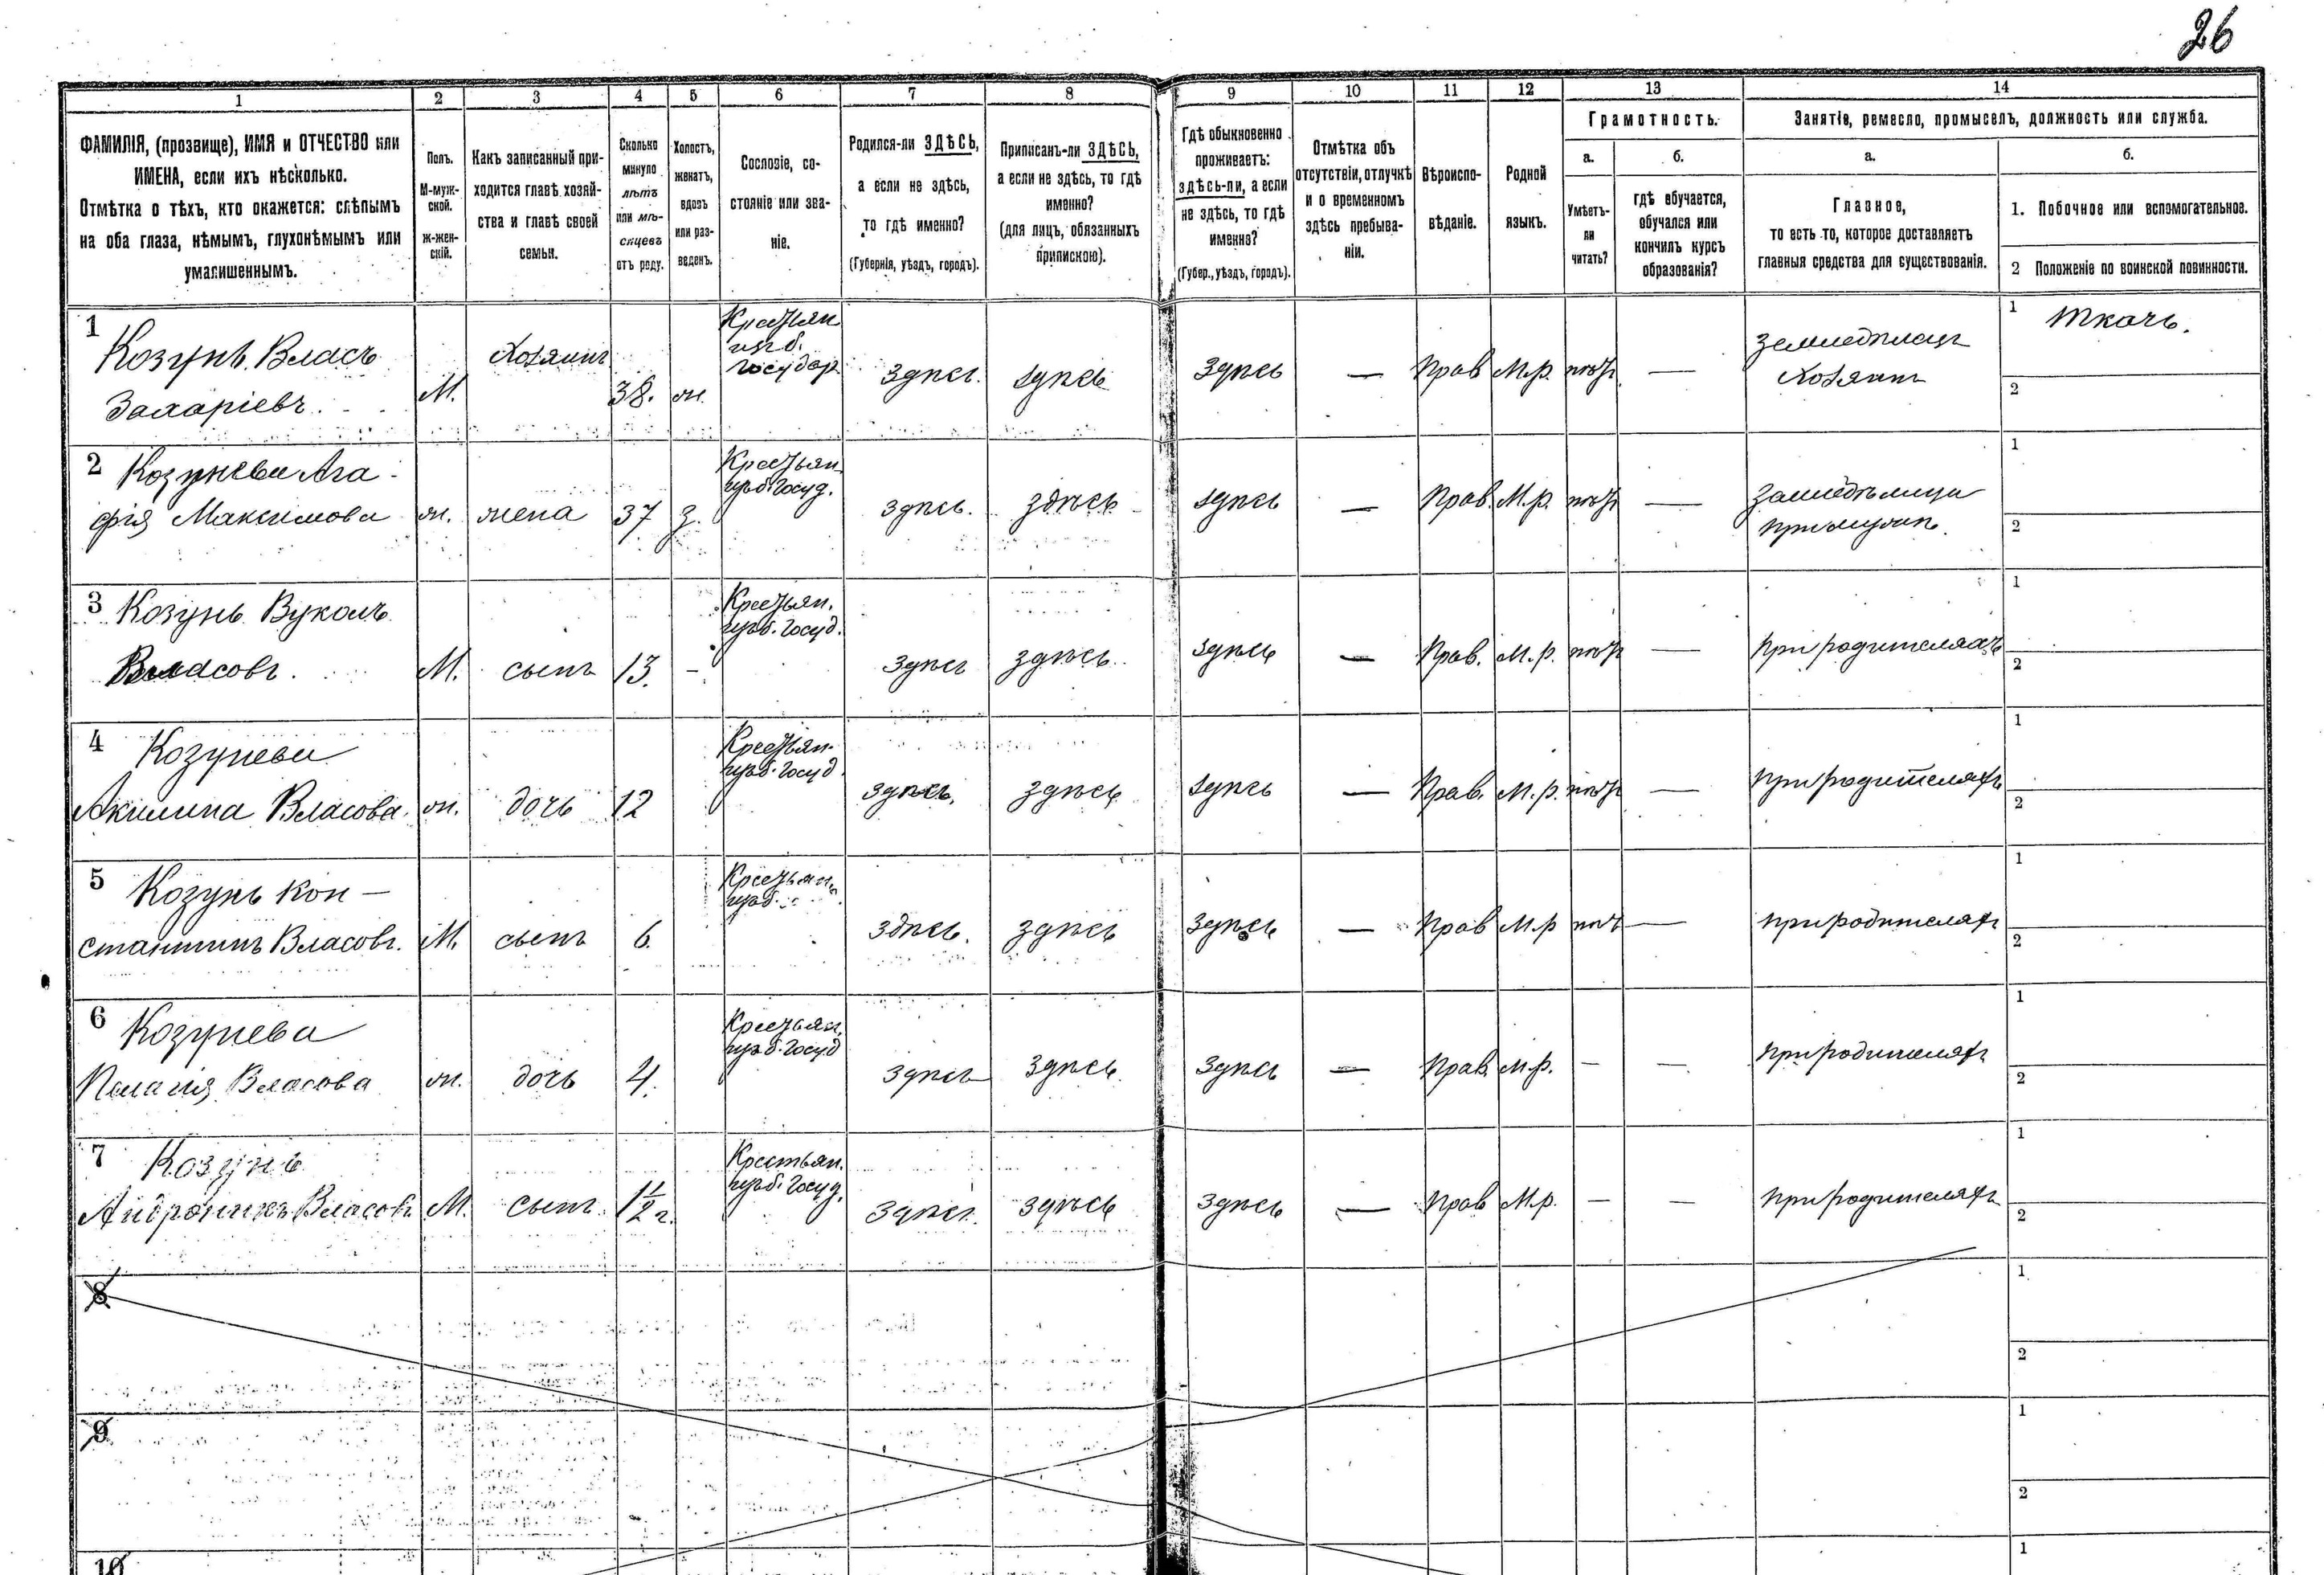 26
1 2 3 4 5 6 7 8 9 10 11 12 13 14
ФАМИЛІЯ, (прозвище), ИМЯ и ОТЧЕСТВО или
ИМЕНА, если ихъ нѣсколько.
Отмѣтка о тѣхъ, кто окажется: слѣпымъ
на оба глаза, нѣмымъ, глухонѣмымъ или
умалишеннымъ.
Полъ.
М-муж-
ской.
ж-жен-
скій.
Какъ записанный при-
ходится главѣ хозяй-
ства и главѣ своей
семьи.
Сколько
минуло
лѣтъ
или мѣ-
сяцевъ
отъ роду.
Холостъ,
женатъ,
вдовъ
или раз-
веденъ.
Сословіе, со-
стояніе или зва-
ніе.
Родился-ли ЗДѢСЬ,
а если не здѣсь,
то гдѣ именно?
(Губернія, уѣздъ, городъ).
Приписанъ-ли ЗДѢСЬ,
а если не здѣсь, то гдѣ
именно?
(для лицъ, обязанныхъ
припискою).
Гдѣ обыкновенно
проживаетъ:
здѣсь-ли, а если
не здѣсь, то гдѣ
именно?
(Губер., уѣздъ, городъ).
Отмѣтка объ
отсутствіи, отлучкѣ
и о временномъ
здѣсь пребыва-
ніи.
Вѣроиспо-
вѣданіе.
Родной
языкъ.
Грамотность.
а.
Умѣетъ-
ли
читать?
б.
гдѣ обучается,
обучался или
кончилъ курсъ
образованія?
Занятіе, ремесло, промыселъ, должность или служба.
а.
Главное,
то есть то, которое доставляетъ
главныя средства для существованія.
б.
1. Побочное или вспомогательное.
2 Положеніе по воинской повинности.
1 Козунь Власъ
Захаріевъ.
М. Хозяинъ 38. ж.
Крестьян
изъ б.
Государ.
здѣсь. здѣсь здѣсь — Прав М.р. нѣт —
Земледѣлец
Хозяинъ
1 Ткачъ.
2
2 Козунева Ага-
фія Максимова
ж. жена 37 з.
Крестьян
изъ б. Госуд.
здѣсь. здѣсь здѣсь — Прав. М.р. нѣт —
при мужѣ.
1
2
3 Козунь Вуколъ
Власовъ.
М. сынъ 13. -
Крестьян.
изъ б. Госуд.
здѣсь здѣсь здѣсь — Прав. М.р. нѣт —
при родителяхъ
1
2
4 Козунева
Акилина Власова.
ж. дочь 12
Крестьян.
изъ б. Госуд
здѣсь. здѣсь здѣсь — Прав. М.р. нѣт —
при родителяхъ
1
2
5 Козунь Кон-
стантинъ Власовъ.
М. сынъ 6.
Крестьян.
изъ б.
здѣсь. здѣсь здѣсь — Прав М.р нѣт —
при родителяхъ
1
2
6 Козунева
Пелагія Власова
ж. дочь 4.
Крестьян.
изъ б. Госуд
здѣсь здѣсь здѣсь — Прав. М.р. — —
при родителяхъ
1
2
7 Козунь
Андроникъ Власовъ
М. сынъ. 1 1/2 г.
Крестьян.
изъ б. Госуд.
здѣсь. здѣсь здѣсь — Прав М.р. — —
при родителяхъ
1
2
8
1
2
9
1
2
10
1